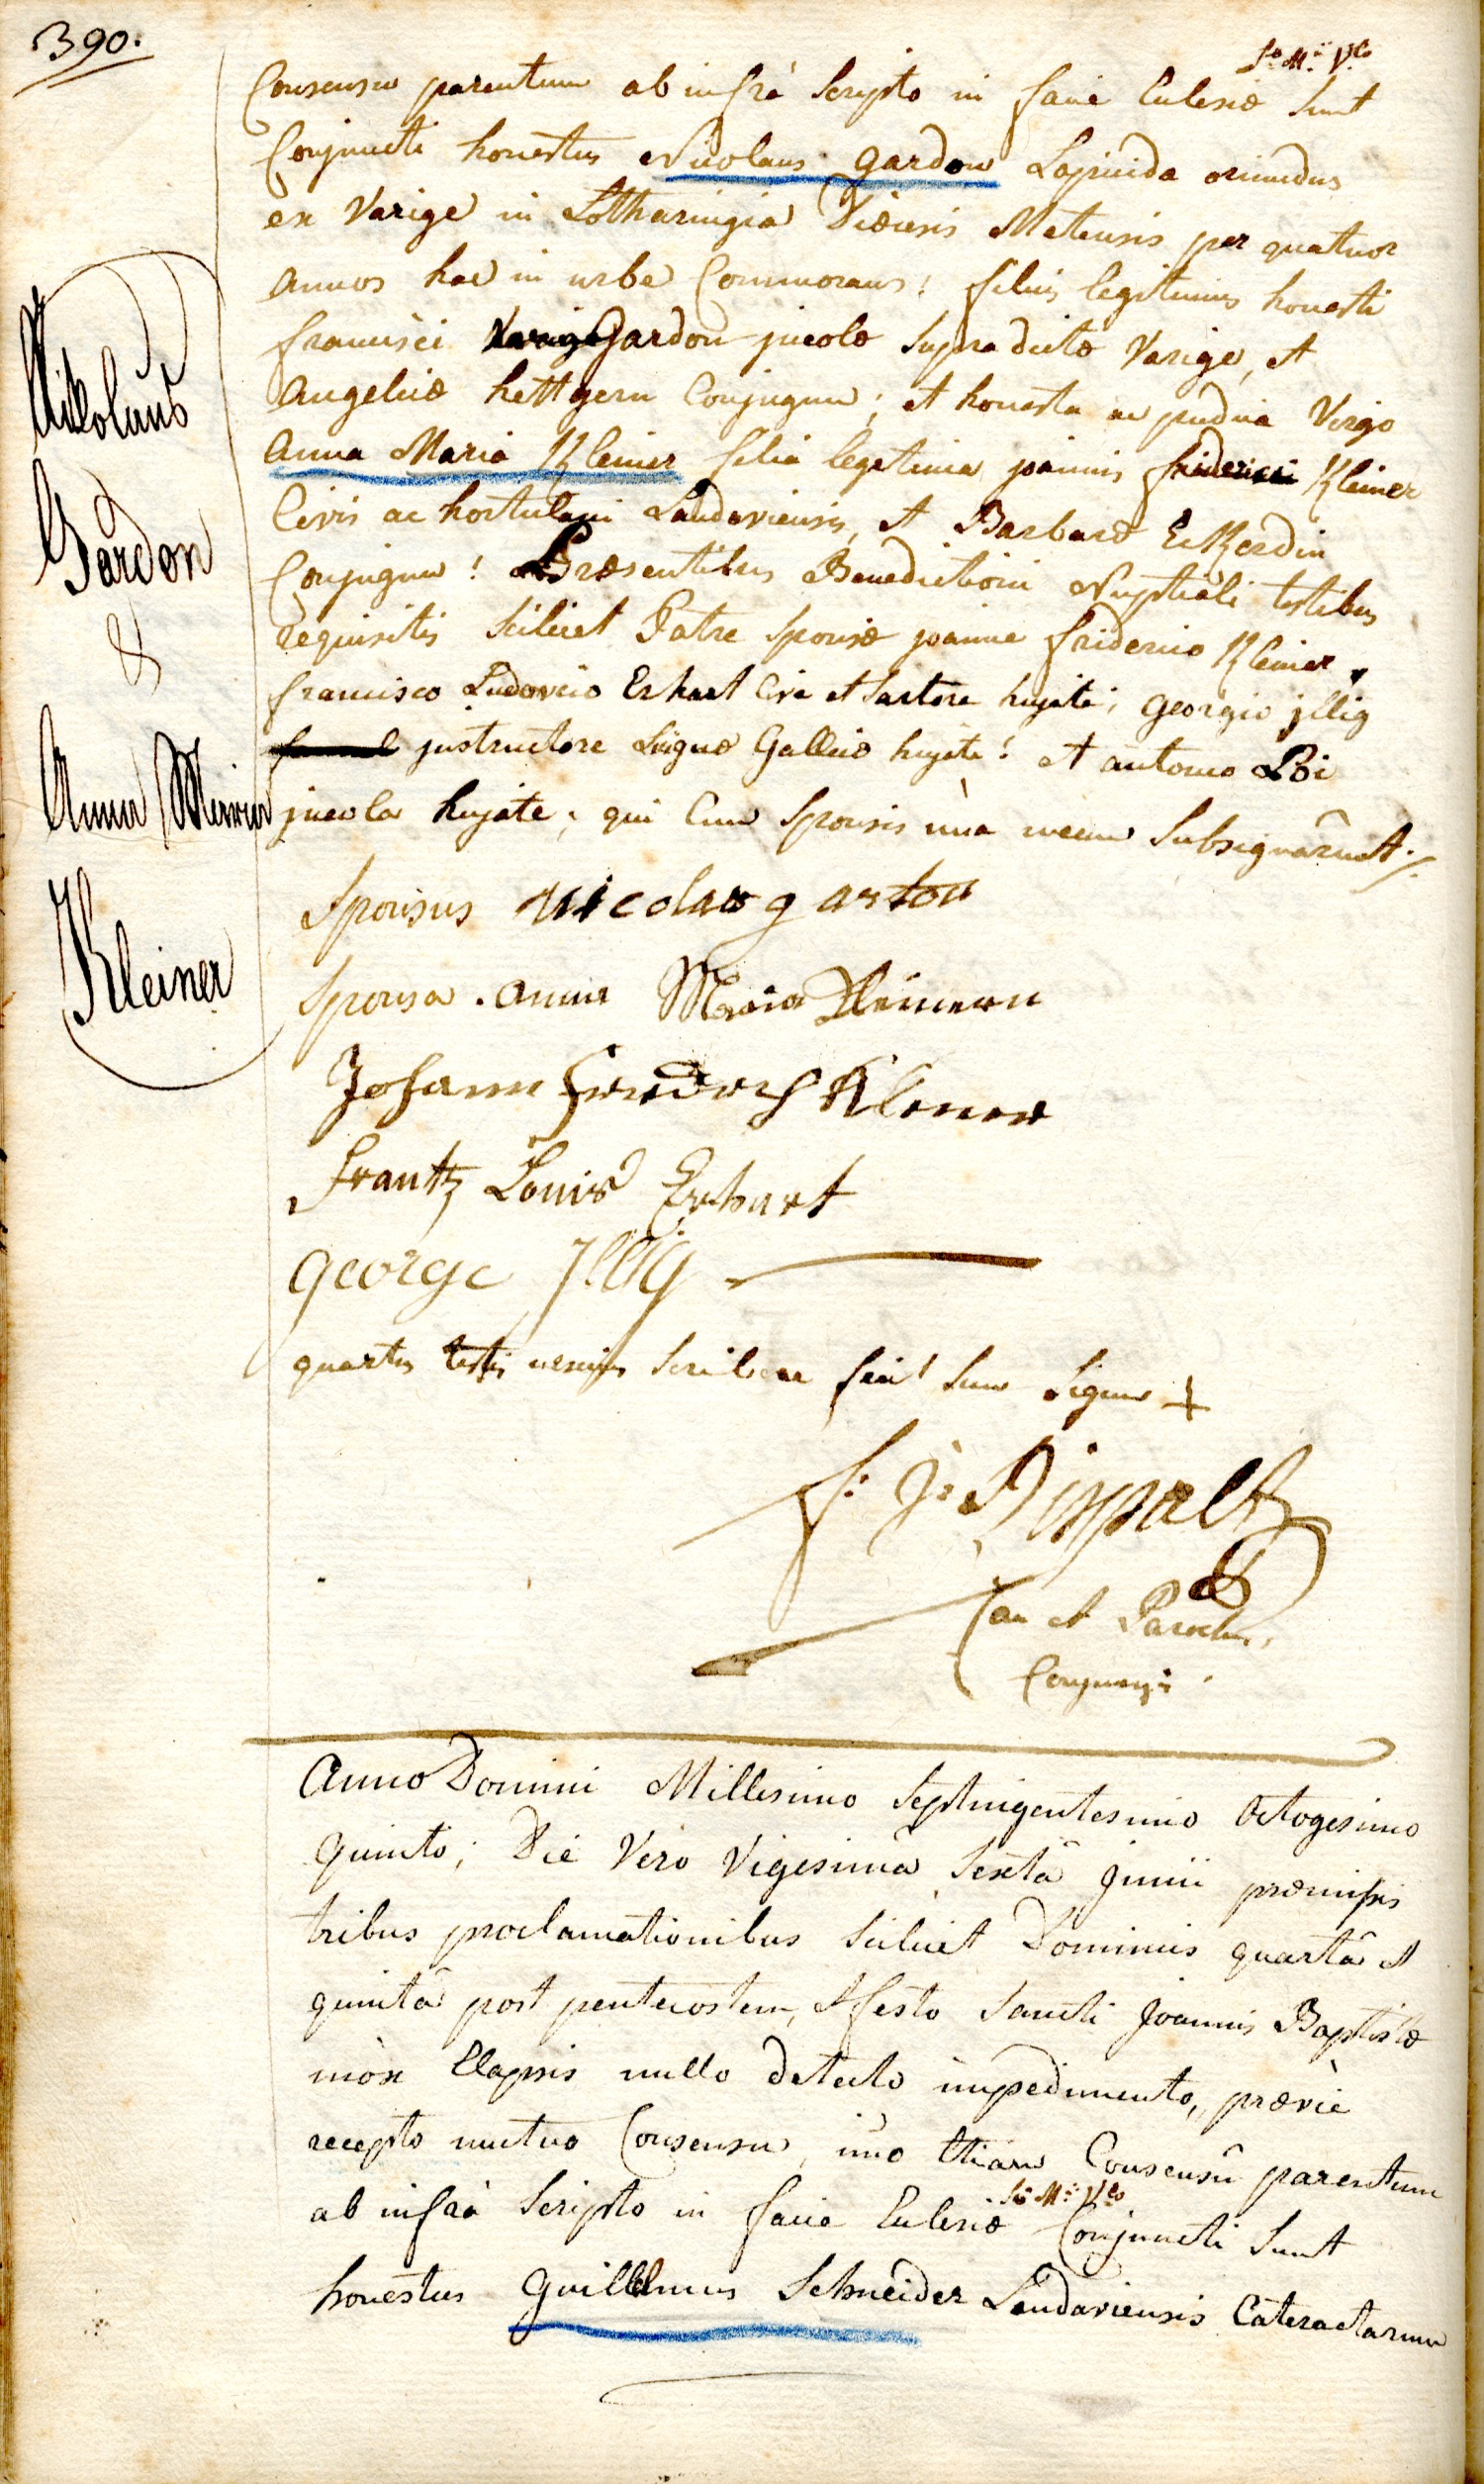 390.
So Mii Vlo
Consensu parentum ab infrà Scripto in facie Eclesiæ Sunt
Conjuncti honestus Nicolaus Gardon Lapicida oriundus
ex Varige in Lotharingia Diœcesis Metensis per quatuor
annos hac in urbe Commorans: filius legitimus honesti
francisci Gardon jncolæ Supra dictæ Varige, et
Angelicæ hettgern Conjugum; et honesta ac pudica Virgo
Anna Maria Kleiner filia legitima joannis friderici Kleiner
Civis ac hortulani Landaviensis, et Barbaræ Eckerdin
Conjugum! Præsentibus Benedictioni Nuptiali testibus
requisitis Scilicet Patre Sponsæ joanne friderico Kleiner,
francisco Ludovico Erhart Cive et Sartore hujate; Georgio jllig
jnstructore Linguæ Gallicæ hujate! et antonio Loi
jncola hujate; qui Cum Sponsis unà mecum Subsignârunt./.
Nikolaus
Gardon
&
Anna Maria
Kleiner
Sponsus nicolas garton
Sponsa . anna Maria Kleinern
Johann Friedrich Kleiner
Frantz Louis Erhart
george Jllig
quartus testis nescius Scribere fecit Suum Signum +
f: J: Dippelt
Can et Parochus.
Conjunxi.
Anno Domini Millesimo Septingentesimo Octogesimo
quinto; Die Vero Vigesimâ Sextâ Junii præmissis
tribus proclamationibus Scilicet Dominicis quartâ et
quintâ post pentecostem, et festo Sancti Joannis Baptistæ
mòx Elapsis nullo detecto impedimento, præviè
recepto mutuo Consensu, imo Etiam Consensû parentum
So Mii Vlo
ab infrà Scripto in facie Eclesiæ Conjuncti Sunt
honestus Guillelmus Schneider Landaviensis Cataractarum